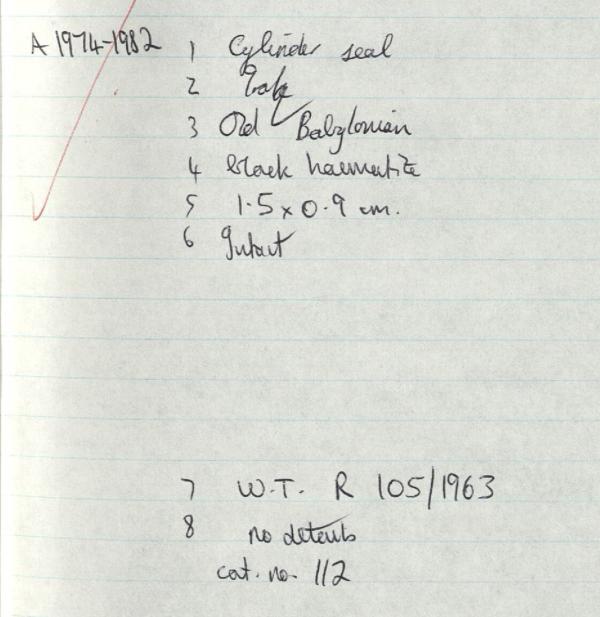 A 1974-1982 1 Cylinder seal
2
3 Old Babylonian
4 black haematite
5 1.5 x 0.9 cm.
6 Intact
7 W.T. R 105/1963
8 no details
cat. no. 112